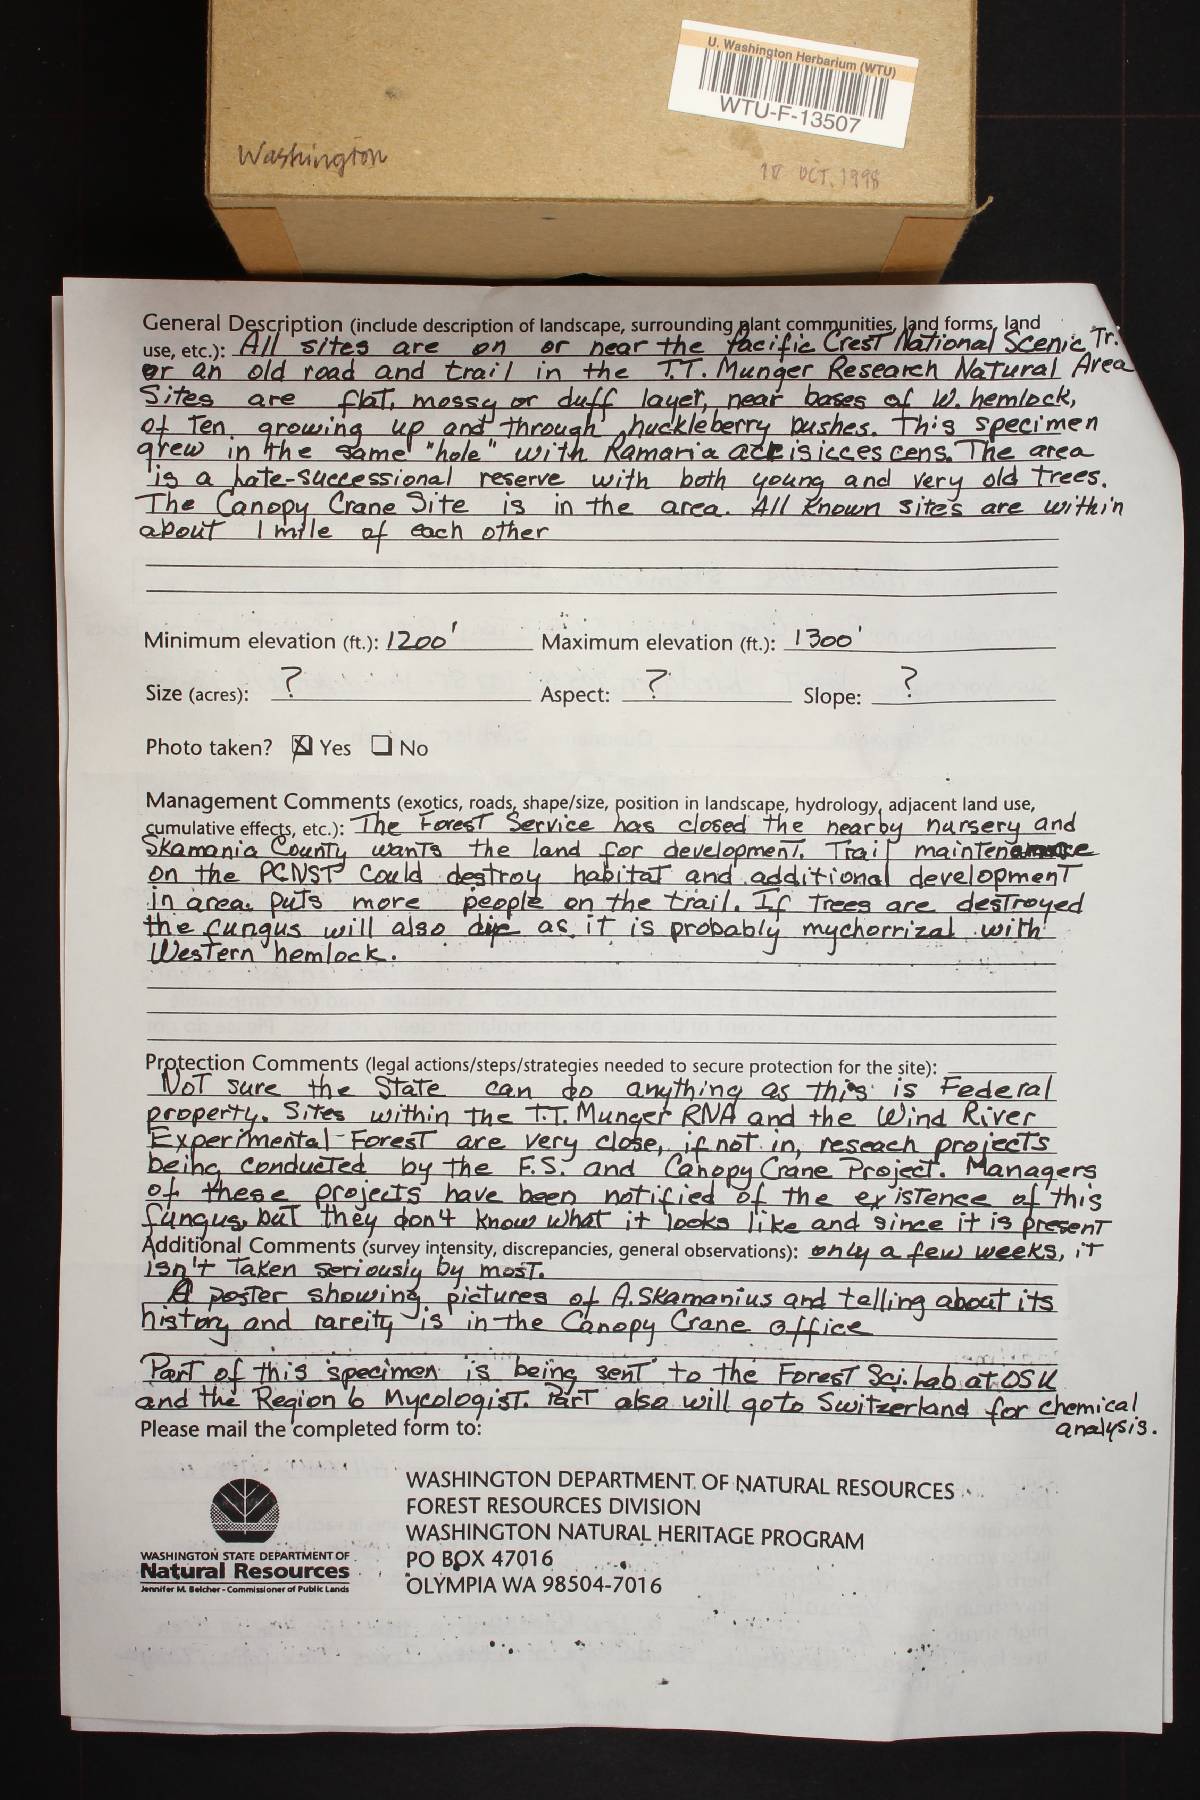 U. Washington Herbarium (WTU)
WTU-F-13507
Washington
OCT. 1998
General Description (include description of landscape, surrounding plant communities, land forms, land
use, etc.): All sites are on or near the Pacific Crest National Scenic Tr.
or an old road and trail in the T.T. Munger Research Natural Area
Sites are flat, mossy or duff layer, near bases of W. hemlock,
often growing up and through huckleberry bushes. This specimen
grew in the same "hole" with Ramaria The area
is a Late-successional reserve with both young and very old trees.
The Canopy Crane Site is in the area. All known sites are within
about 1 mile of each other
Minimum elevation (ft.): 1200' Maximum elevation (ft.): 1300'
Size (acres): ? Aspect: ? Slope: ?
Photo taken? Yes No
Management Comments (exotics, roads, shape/size, position in landscape, hydrology, adjacent land use,
cumulative effects, etc.): The Forest Service has closed the nearby nursery and
Skamania County wants the land for development. Trail maintenance
on the PCNST could destroy habitat and additional development
in area puts more people on the trail. If trees are destroyed
the fungus will also die as it is probably mychorrizal with
Western hemlock.
Protection Comments (legal actions/steps/strategies needed to secure protection for the site):
Not sure the State can do anything as this is Federal
property. Sites within the T.T. Munger RNA and the Wind River
Experimental Forest are very close, if not in, reseach projects
being conducted by the F.S. and Canopy Crane Project. Managers
of these projects have been notified of the existence of this
fungus, but they don't know what it looks like and since it is present
Additional Comments (survey intensity, discrepancies, general observations): only a few weeks, it
isn't taken seriously by most.
A poster showing pictures of A. Skamanius and telling about its
history and rareity is in the Canopy Crane office
Part of this specimen is being sent to the Forest Sci. Lab at OSU
and the Region 6 Mycologist. Part also will go to Switzerland for chemical
analysis.
Please mail the completed form to:
WASHINGTON DEPARTMENT OF NATURAL RESOURCES
FOREST RESOURCES DIVISION
WASHINGTON NATURAL HERITAGE PROGRAM
PO BOX 47016
OLYMPIA WA 98504-7016
WASHINGTON STATE DEPARTMENT OF
Natural Resources
Jennifer M. Belcher - Commissioner of Public Lands